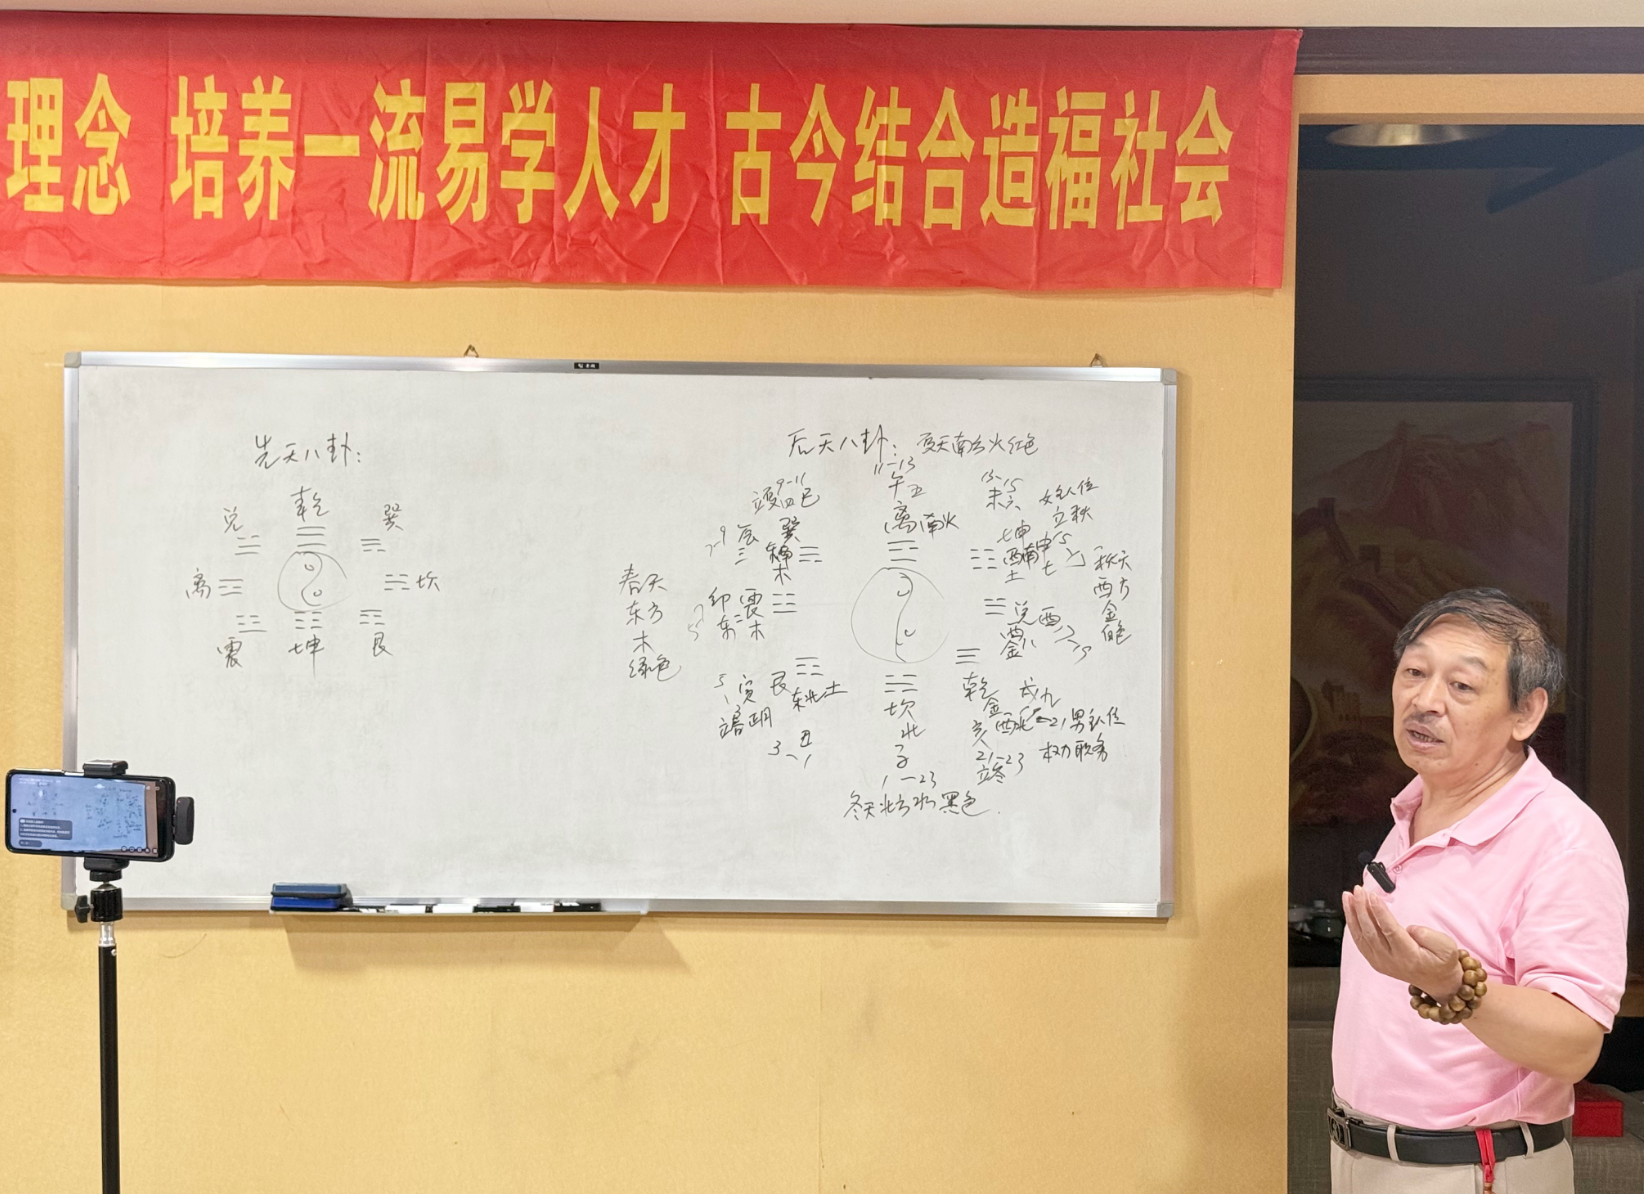 理念 培养一流易学人才 古今结合造福社会
先天八卦：
乾
兑
巽
离
坎
震
坤
艮
后天八卦： 夏天南方火红色
11-13
午 五
离 南火
9-11
立夏 四 巳
巽
木
辰 三
7-9
13-15
未 六
女主人位
立秋
坤
申 七
土
春天
东方
木
绿色
卯 二
震
东 木
5-7
秋天
西方
金
白色
兑 酉
金 八
艮
东北土
寅 正月
立春
丑
3-1
坎
北
子
1-23
冬天北方水 黑色
乾
金
西北
戌九
亥
21-23
立冬
男主人位
权力 职务